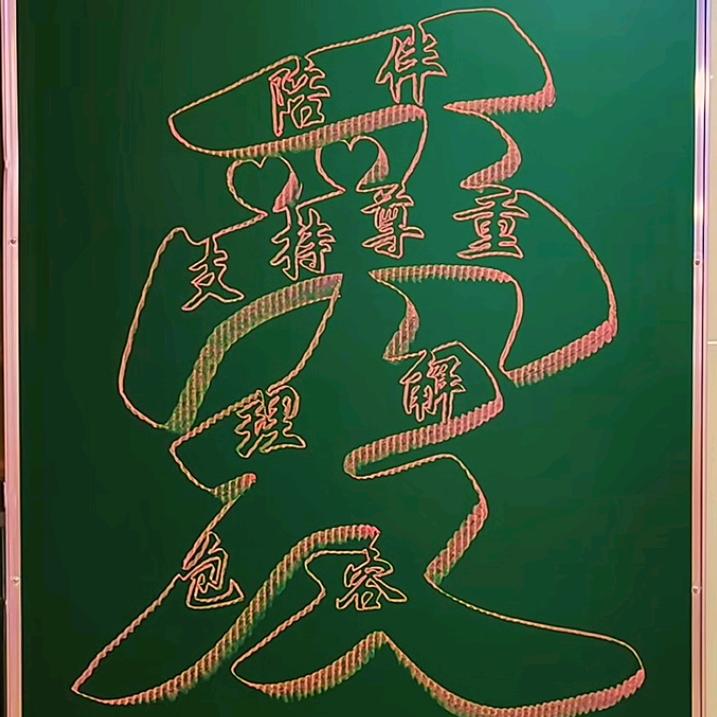 爱
陪伴
支持尊重
理解
包容